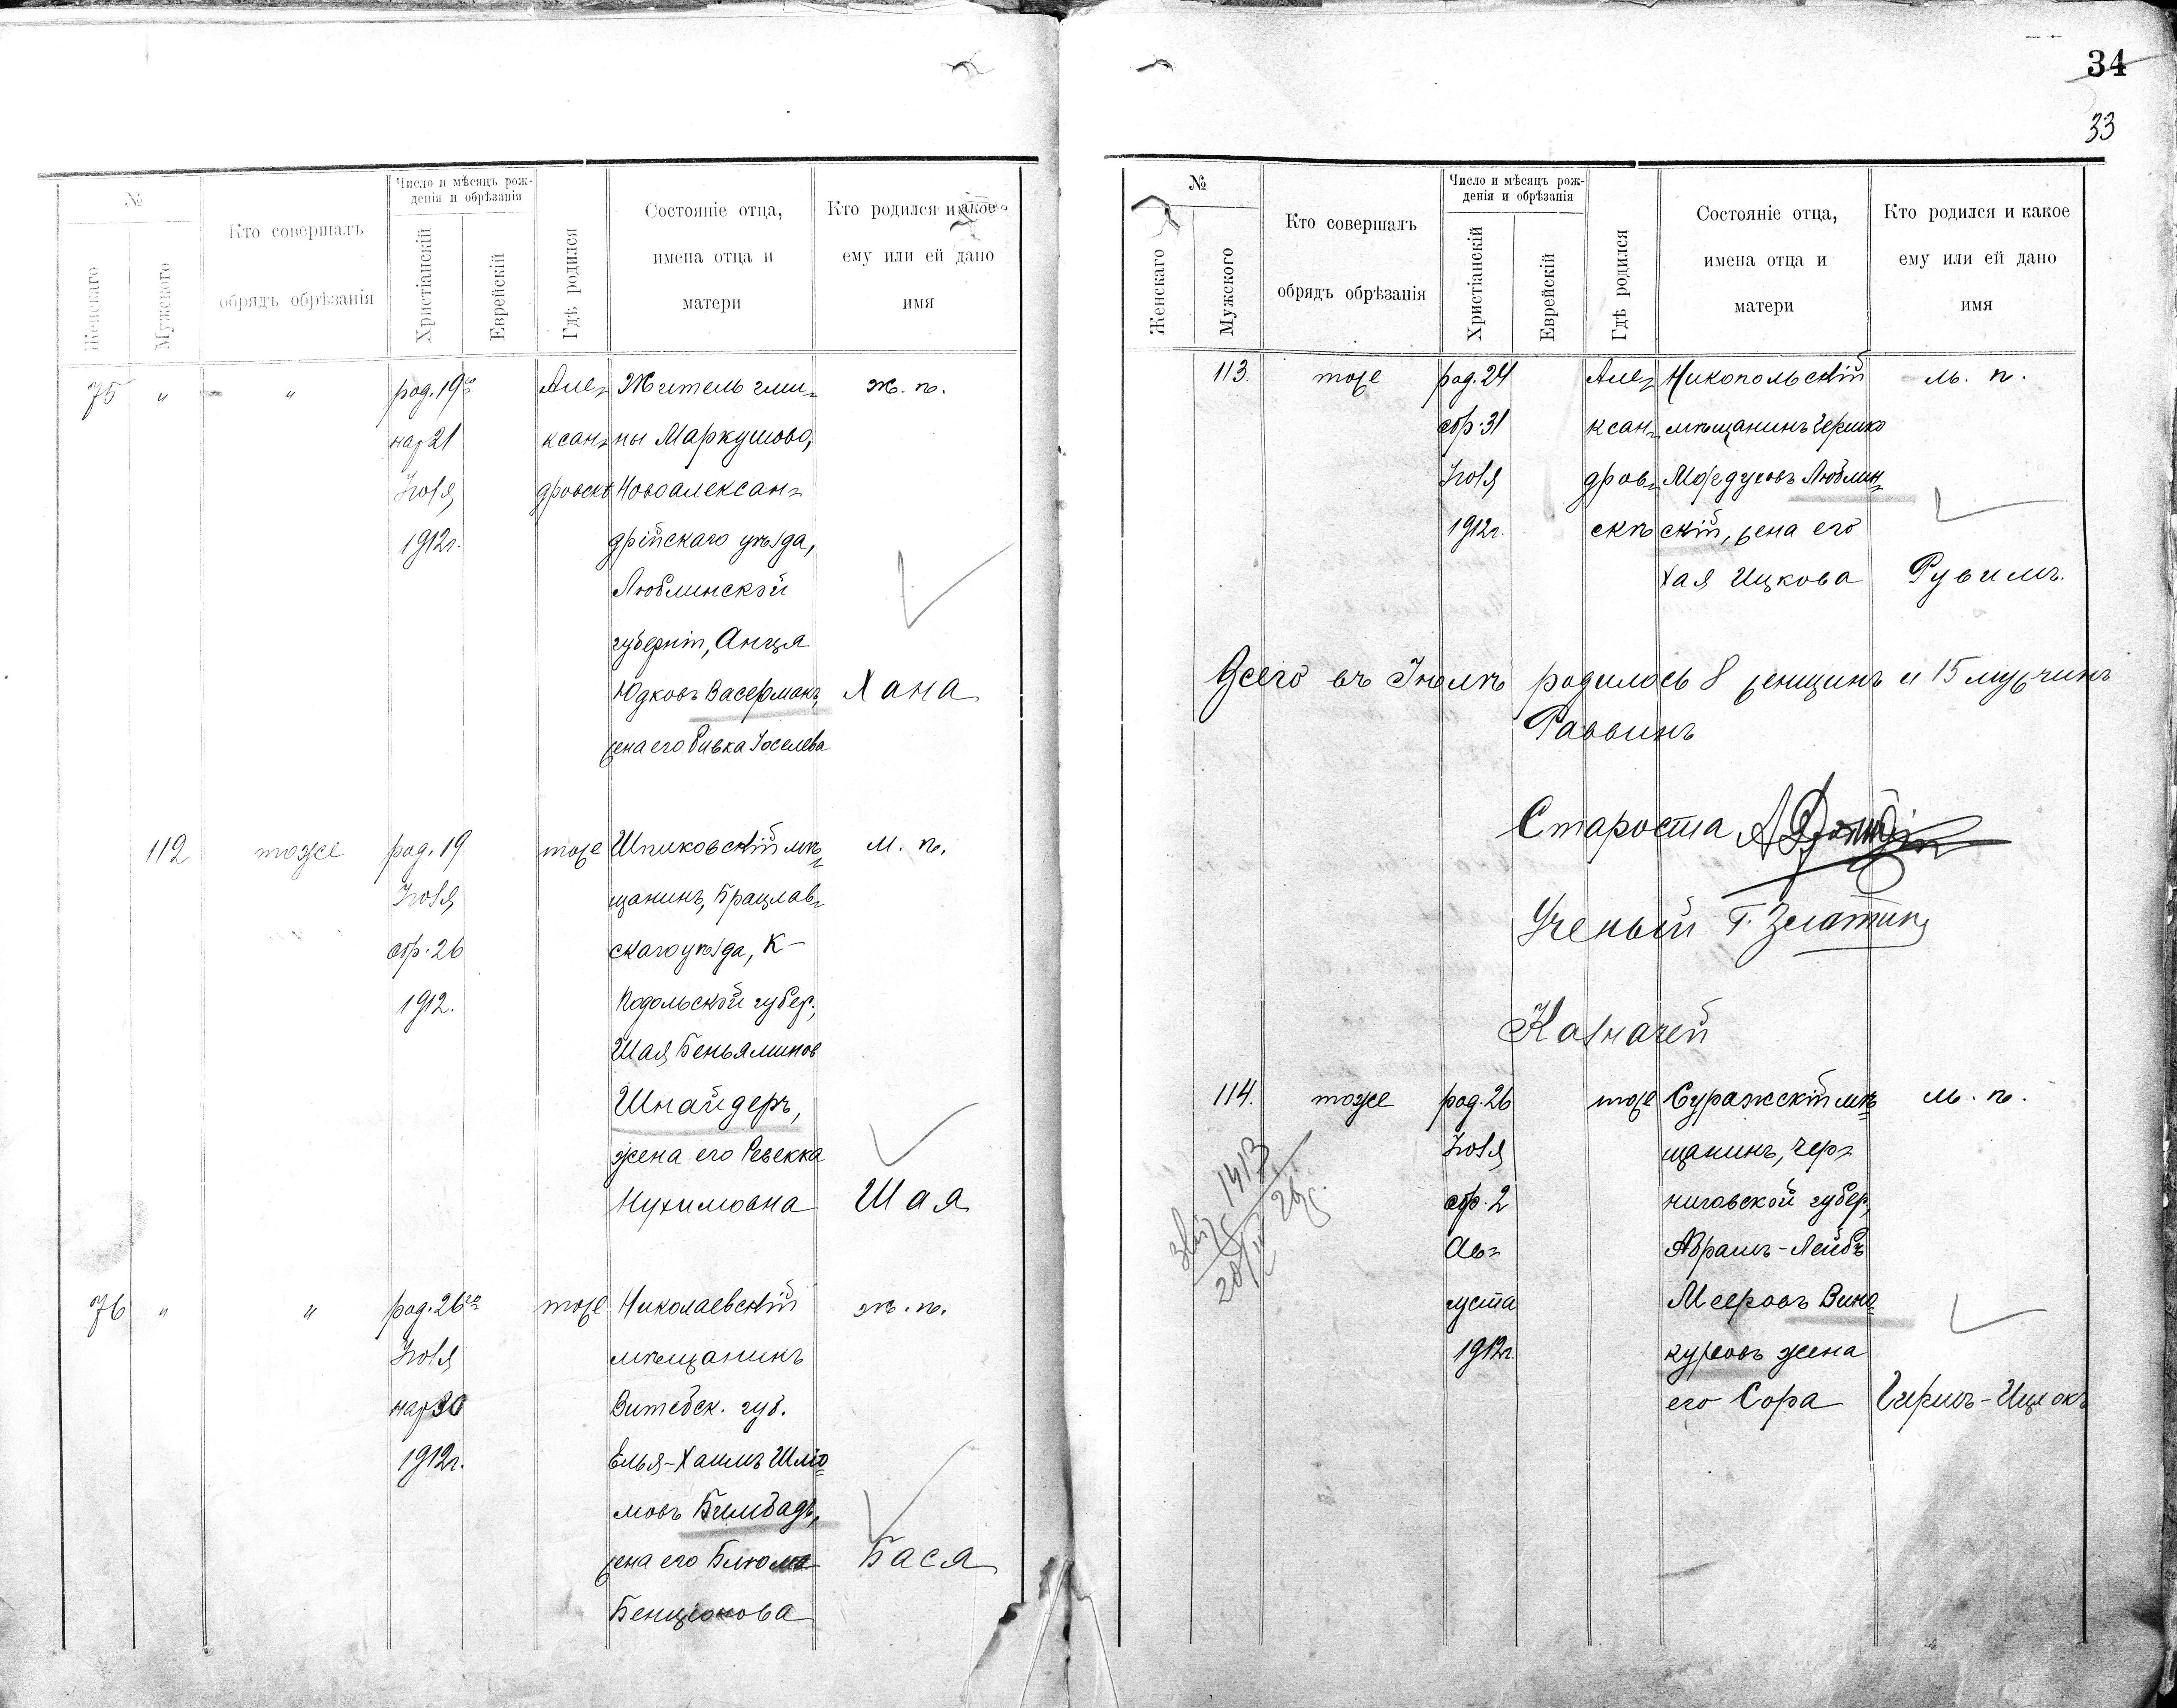 №
Женскаго
Мужского
Кто совершалъ
обрядъ обрѣзанія
Число и мѣсяцъ рож-
денія и обрѣзанія
Христіанскій
Еврейскій
Гдѣ родился
Состояніе отца,
имена отца и
матери
Кто родился и какое
ему или ей дано
имя
75 " " род. 19го Алек- Житель гми- ж. п.
нар 21 ксан- ны Маркушово,
Іюля дровскѣ Новоалексан-
1912г. дрійскаго уѣзда,
Люблинской
губерніи, Анця
Юдковъ Васерманъ, Хана
жена его Ривка Іоселева
112 тоже род. 19 тоже Шпиковскій мѣ- м. п.
Іюля щанинъ, Брацлав-
обр. 26 скаго уѣзда, К-
1912. Подольской губер.,
Шая Беньяминов
Шнайдеръ,
жена его Ревекка
Нухимовна Шая
76 " " род. 26го тоже Николаевскій ж. п.
Іюля мѣщанинъ
нар 30 Витебск. губ.
1912г. Елья-Хаимъ Шлio-
мовъ Бимбадъ,
жена его Блюма Бася
Бенціонова
34
33
№
Женскаго
Мужского
Кто совершалъ
обрядъ обрѣзанія
Число и мѣсяцъ рож-
денія и обрѣзанія
Христіанскій
Еврейскій
Гдѣ родился
Состояніе отца,
имена отца и
матери
Кто родился и какое
ему или ей дано
имя
113. тоже род. 24 Але- Никопольскій м. п.
обр. 31 ксан- мѣщанинъ Гершко
Іюля дров- Мордуховъ Люблин-
1912г. скѣ скій, жена его
Хая Ицкова Рувимъ.
Всего въ Іюлѣ родилось 8 женщинъ и 15 мужчинъ
Раввинъ
Староста
Ученый Г. Златкин
Казначей
114. тоже род. 26 тоже Суражскій мѣ- м. п.
Іюля щанинъ, Чер-
обр. 2 ниговской губер,
Ав- Абрамъ-Лейбъ
густа Мееровъ Вино-
1912г. куровъ жена
его Сора Гиршъ-Ицхокъ